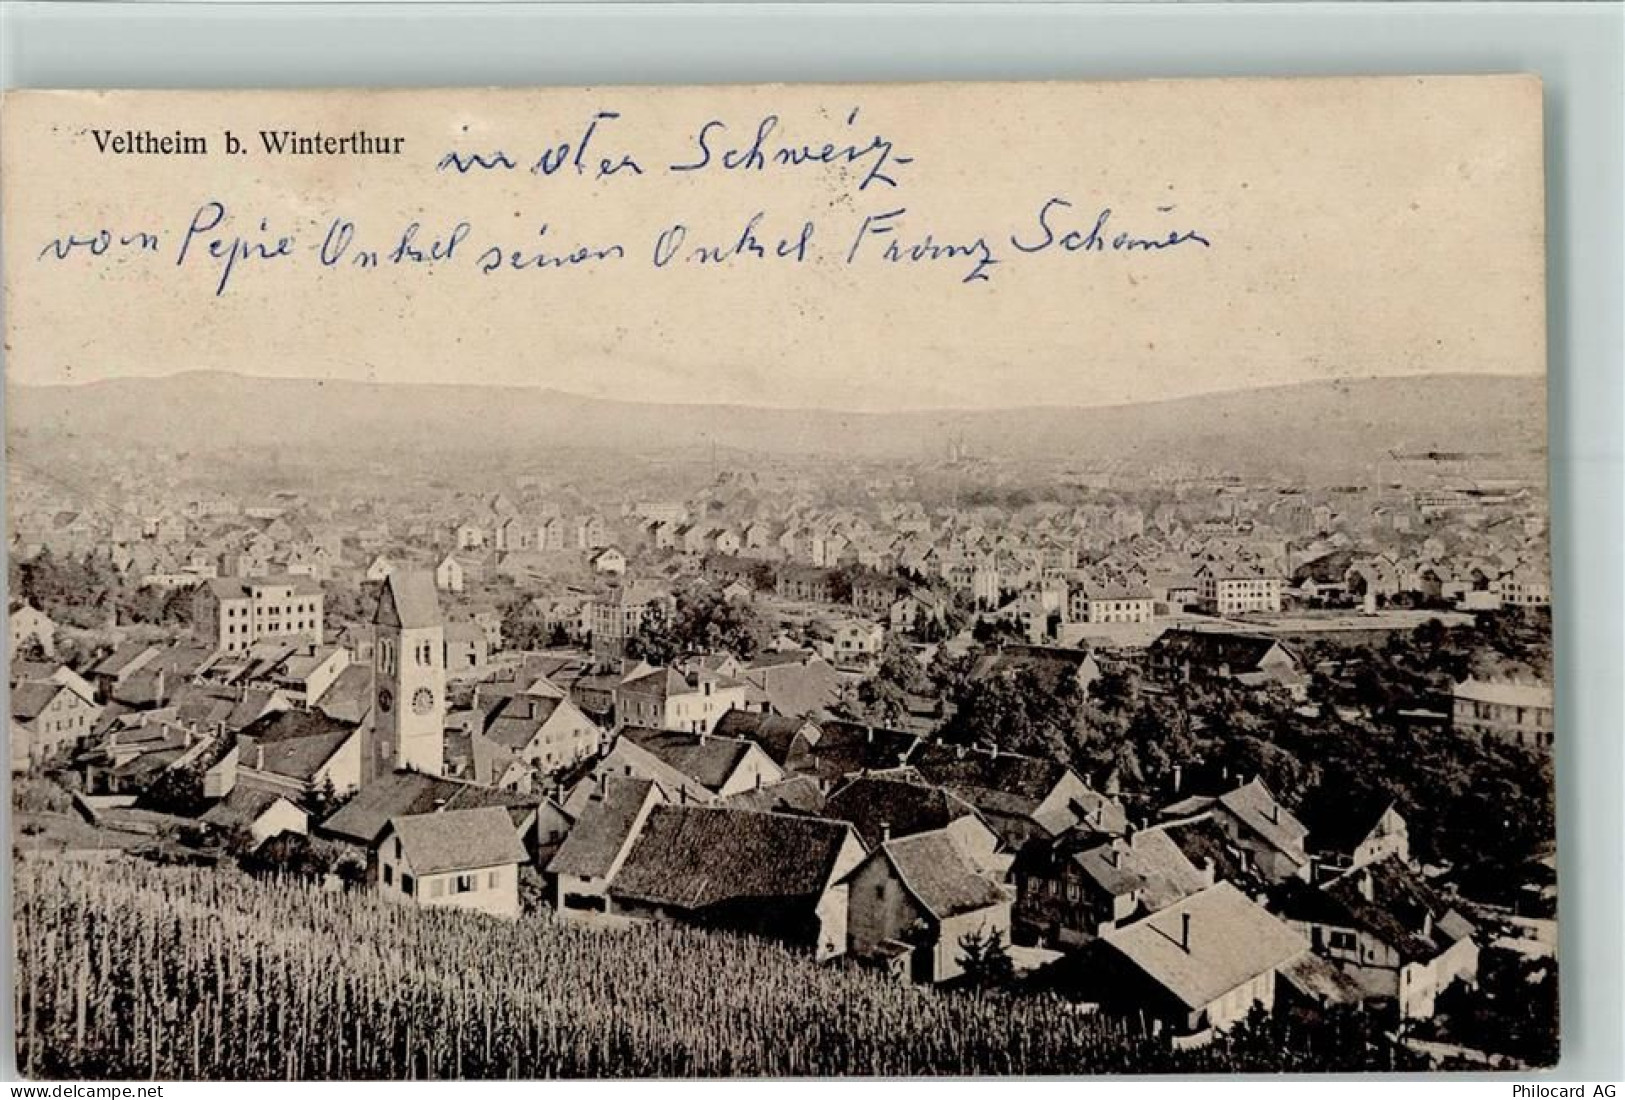 Veltheim b. Winterthur
in der Schweiz
von Pepie Onkel seinen Onkel Franz
www.delcampe.net
Philocard AG